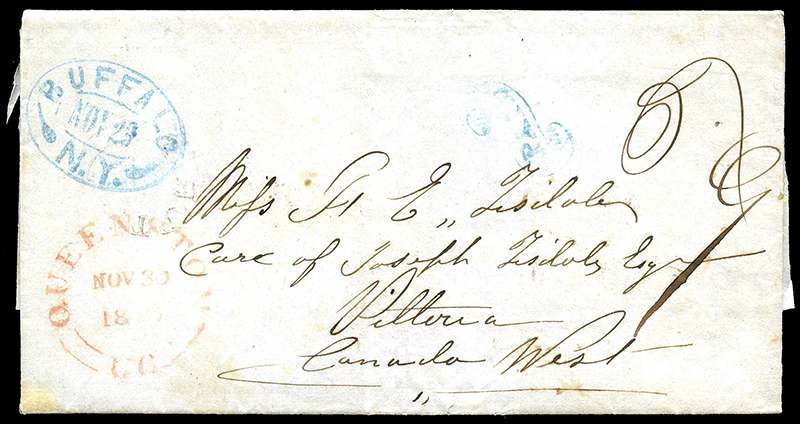 BUFFALO
NOV 29
N.Y.
QUEENSTON
NOV 30
18
U.C.
Miss H E,, Tisdale
Care of Joseph Tisdale Esqr
Vittoria
Canada West